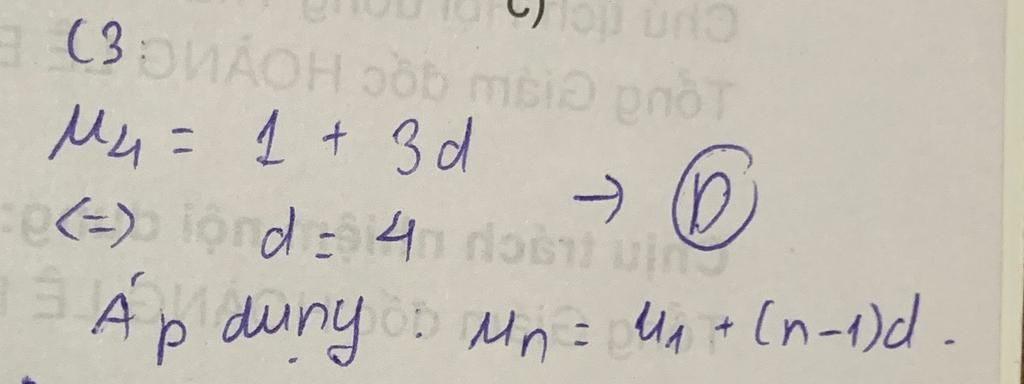 C3:
u4 = 1 + 3d
<=> d = 4 → D
Áp dụng : un = u1 + (n-1)d.